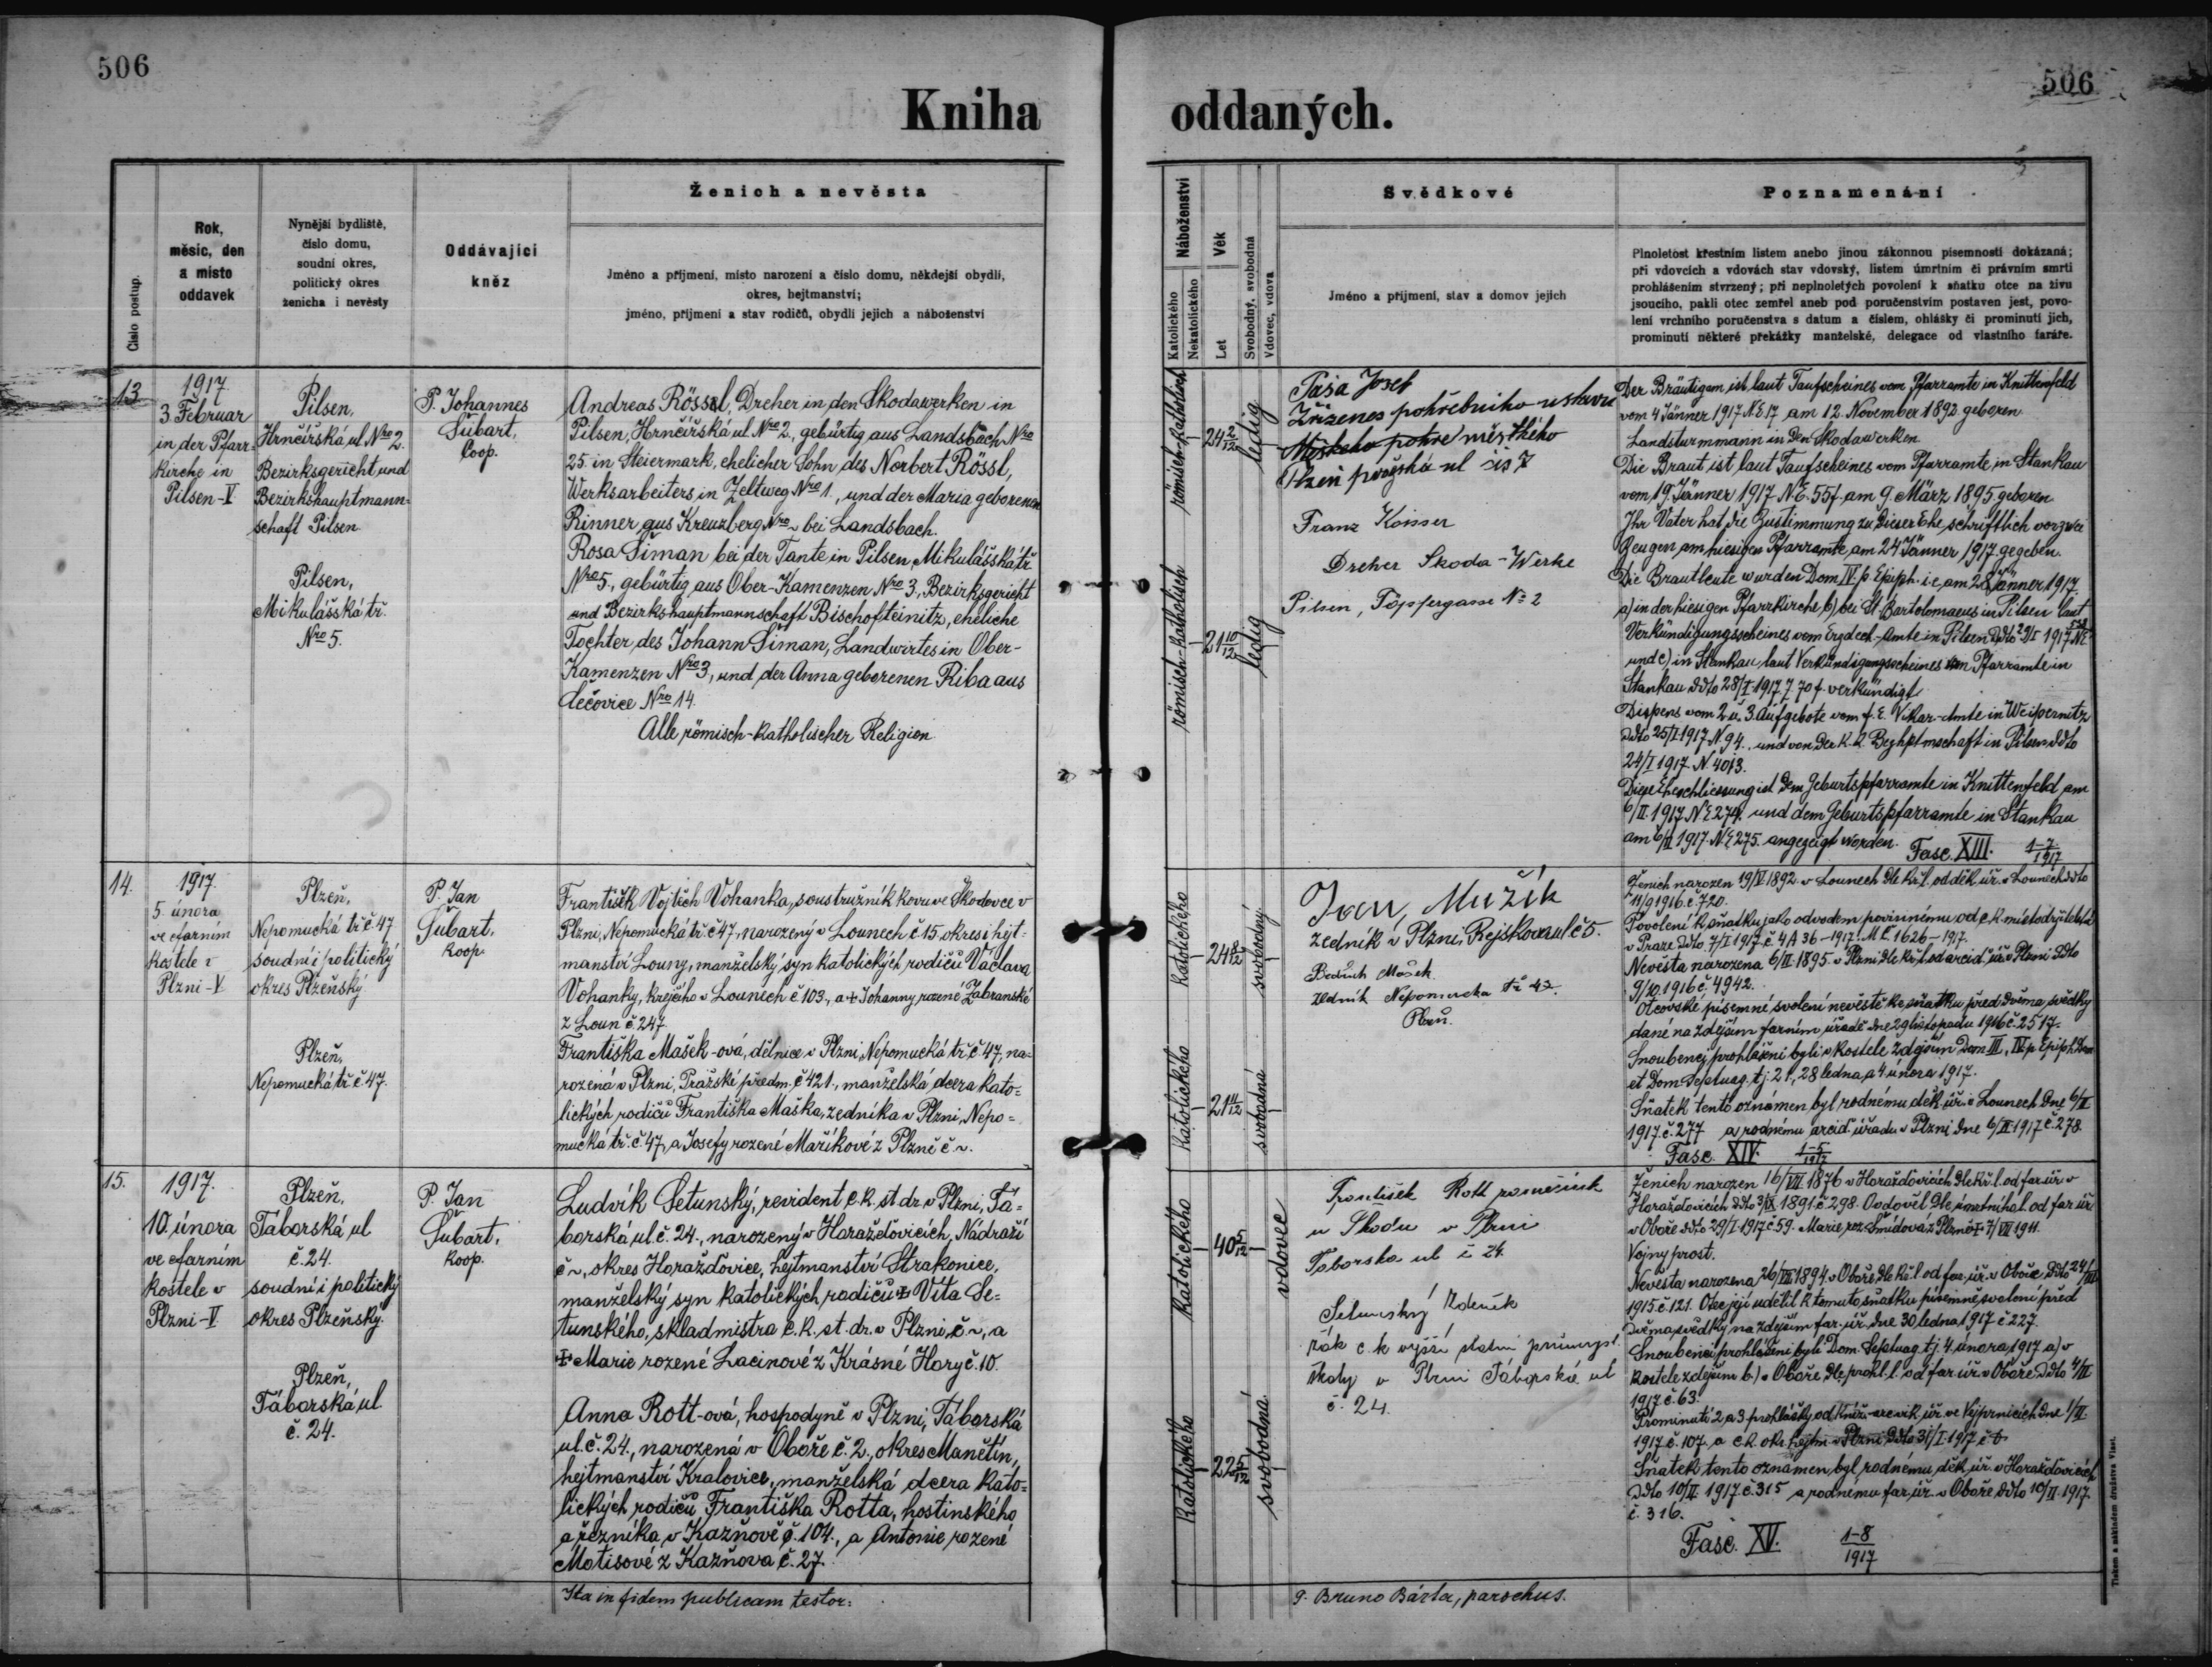 506
506
Kniha
oddaných.
Číslo postup.
Rok,
měsíc, den
a místo
oddavek
Nynější bydliště,
číslo domu,
soudní okres,
politický okres
ženicha i nevěsty
Oddávající
kněz
Ženich a nevěsta
Jméno a příjmení, místo narození a číslo domu, někdejší obydlí,
okres, hejtmanství;
jméno, příjmení a stav rodičů, obydlí jejich a náboženství
Náboženství
Katolického
Nekatolického
Věk
Let
Svobodný, svobodná
Vdovec, vdova
Svědkové
Jméno a příjmení, stav a domov jejich
Poznamenání
Plnoletost křestním listem anebo jinou zákonnou písemností dokázaná;
při vdovcích a vdovách stav vdovský, listem úmrtním či právním smrti
prohlášením stvrzený; při neplnoletých povolení k sňatku otce na živu
jsoucího, pakli otec zemřel aneb pod poručenstvím postaven jest, povo-
lení vrchního poručenstva s datum a číslem, ohlášky či prominutí jich,
prominutí některé překážky manželské, delegace od vlastního faráře.
13
1917
3 Februar
in der Pfarr-
kirche in
Pilsen-V
Pilsen,
Hrnčířská ul Nro 2.
Bezirksgericht und
Bezirkshauptmann-
schaft Pilsen
Pilsen,
Mikulášská tř.
Nro 5.
P. Johannes
Šubart,
Coop.
Andreas Rössl, Dreher in den Skodawerken in
Pilsen, Hrnčířská ul. Nro 2., gebürtig aus Landsbach Nro
25. in Steiermark, ehelicher Sohn des Norbert Rössl,
Werksarbeiters in Zeltweg Nro 1., und der Maria geborenen
Rinner aus Kreuzberg Nro ~ bei Landsbach.
Rosa Šiman bei der Tante in Pilsen, Mikulášská tř.
Nro 5, gebürtig aus Ober-Kamenzen Nro 3., Bezirksgericht
und Bezirkshauptmannschaft Bischofteinitz, eheliche
Tochter des Johann Šiman, Landwirtes in Ober-
Kamenzen Nro 3, und der Anna geborenen Riba aus
Čečovice Nro 14.
Alle römisch-katholischer Religion
römisch-katholisch
24 2/12
ledig
römisch-katholisch
21 10/12
ledig
Paša Josef
Zřízenes pohřebniho ustavu
Městkeho pohře městkého
Plzeň pražská ul čis 7
Franz Koisser
Dreher Skoda-Werke
Pilsen, Töpfergasse No 2
Der Bräutigam ist laut Taufscheines vom Pfarramte in Knittenfeld
vom 4 Jänner 1917 N.E 17 am 12. November 1892 geboren
Landsturmmann in den Skodawerken
Die Braut ist laut Taufscheines vom Pfarramte in Stankau
vom 19. Jänner 1917 N.E. 55f. am 9. März 1895 geboren
Ihr Vater hat die Zustimmung zu dieser Ehe schriftlich vor zwei
Zeugen am hiesigen Pfarramte am 24 Jänner 1917 gegeben.
Die Brautleute wurden Dom IV. p. Epiph. i.e. am 28 Jänner 1917.
a) in der hiesigen Pfarrkirche b) bei St. Bartolomaeus in Pilsen laut
Verkündigungsscheines vom Erzdech.-Amte in Pilsen ddto 1917
und c) in Stankau laut Verkündigungsscheines vom Pfarramte in
Stankau ddto 28/I 1917 70 f. verkündigt
Dispens vom 2. u. 3. Aufgebote vom f. E. Vikar-Amte in Weipernitz
ddto 25/I 1917 N 94., und von der k. k. Bezhptmschaft in Pilsen ddto
24/I 1917 N. 4013.
Diese Eheschliessung ist dem Geburtspfarramte in Knittenfeld am
6/II. 1917 NE 274. und dem Geburtspfarramte in Stankau
am 6/II 1917 NE 275. angezeigt worden. Fasc. XIII. 1-7/1917
14.
1917.
5. února
ve farním
kostele v
Plzni-V
Plzeň,
Nepomucká tř. č 47
soudní i politický
okres Plzeňský.
Plzeň,
Nepomucká tř. č 47.
P. Jan
Šubart,
koop.
František Vojtěch Vohanka, soustružník kovu ve Škodovce v
Plzni, Nepomucká tř. č 47, narozený v Lounech č 15. okres i hejt-
manství Louny, manželský syn katolických rodičů Václava
Vohanky, krejčího v Lounech č 103., a + Johanny rozené Zabranské
z Loun č. 247.
Františka Mašek-ová, dělnice v Plzni, Nepomucká tř. č 47, na-
rozená v Plzni, Pražské předm. č 421., manželská dcera kato-
lických rodičů Františka Maška, zedníka v Plzni, Nepo-
mucká tř. č 47, a Josefy rozené Maříkové z Plzně č ~.
Katolického
24 8/12
svobodný
Katolického
21 11/12
svobodná
Ivan, Mužík
zedník v Plzni, Rejskova ul č 5.
Bedřich Mašek
zedník Nepomucka tř 47.
Plzeň.
Ženich narozen 19/V 1892 v Lounech dle kř. l. od děk. úř. v Lounech ddto
11/9 1916. č 720.
Povolení k sňatku jako odvodem povinnému od c. k. místodržitelství
v Praze ddto. 7/I 1917 č 4A 36-1917. M.Č. 1626-1917.
Nevěsta narozena 6/III. 1895. v Plzni dle kř. l. od arcid. úř. v Plzni ddto
9/10. 1916 č 4942.
Otcovské písemné svolení nevěstě ke sňatku před dvěma svědky
dané na zdejším farním úřadě dne 29 listopadu 1916 č 2517.
Snoubenci prohlášeni byli v kostele zdejším Dom III., IV. p. Epiph. Dom
et Dom Septuag. tj. 21, 28 ledna, a 4 února 1917.
Sňatek tento oznámen byl rodnému děk. úř. v Lounech dne 6/II
1917. č. 277 a rodnému arcid. úřadu v Plzni dne 6/II 1917 č. 278.
Fasc. XIV. 1-5/1917
15.
1917.
10. února
ve farním
kostele v
Plzni-V.
Plzeň,
Táborská ul
č. 24.
soudní i politický
okres Plzeňský.
Plzeň,
Táborská ul
č. 24.
P. Jan
Šubart,
koop.
Ludvík Setunský, revident c. k. st. dr. v Plzni, Tá-
borská ul. č. 24., narozený v Horažďovicích, Nádraží
č ~, okres Horažďovice, hejtmanství Strakonice,
manželský syn katolických rodičů + Víta Se-
tunského, skladmistra c. k. st. dr. v Plzni, č ~, a
+ Marie rozené Lacinové z Krásné Hory č. 10.
Anna Rott-ová, hospodyně v Plzni, Táborská
ul. č. 24., narozená v Oboře č. 2., okres Manětín,
hejtmanství Kralovice, manželská dcera kato-
lických rodičů Františka Rotta, hostinského
a řezníka v Kazňově č. 104., a Antonie rozené
Matisové z Kazňova č. 27.
Katolického
40 5/12
vdovec
Katolického
22 5/12
svobodná
František Rott
u Škodu v Plzni
Taborska ul č. 24.
Setunský Zdeněk
žák c. k. vyšší státní průmysl.
školy v Plzni Táborská ul
č. 24.
Ženich narozen 16/VIII. 1876 v Horažďovicích dle kř. l. od far. úř. v
Horažďovicích ddto 3/IX 1891 č 298. Ovdověl dle úmrtního l. od far. úř.
v Oboře ddto 29/I 1917 č 59. Marie roz. Šmídová z Plzně + 7/VII 1911.
Vojny prost.
Nevěsta narozena 26/VIII 1894 v Oboře, dle kř. l. od far. úř. v Oboře, ddto 24/III
1915. č 121. Otec její udělil k tomuto sňatku písemné svolení před
dvěma svědky na zdejším far. úř. dne 30 ledna 1917 č 227.
Snoubenci prohlášeni byli Dom. Septuag. tj. 4. února 1917. a) v
kostele zdejším b) v Oboře, dle prohl. l. od far. úř. v Oboře ddto 4/II
1917 č. 63.
Prominutí 2 a 3 prohlášky od kníž.-arc. vik. úř. ve Vejprnicích dne 1/II.
1917 č. 107., a c. k. okr. hejtm. v Plzni ddto 31/I. 1917
Sňatek tento oznámen byl rodnému děk. úř. v Horažďovicích
ddto 10/II 1917 č. 315 a rodnému far. úř. v Oboře ddto 10/II 1917.
č. 316.
Fasc. XV. 1-8/1917
Ita in fidem publicam testor:
P. Bruno Bárta, parochus.
Tiskem a nákladem družstva Vlast.